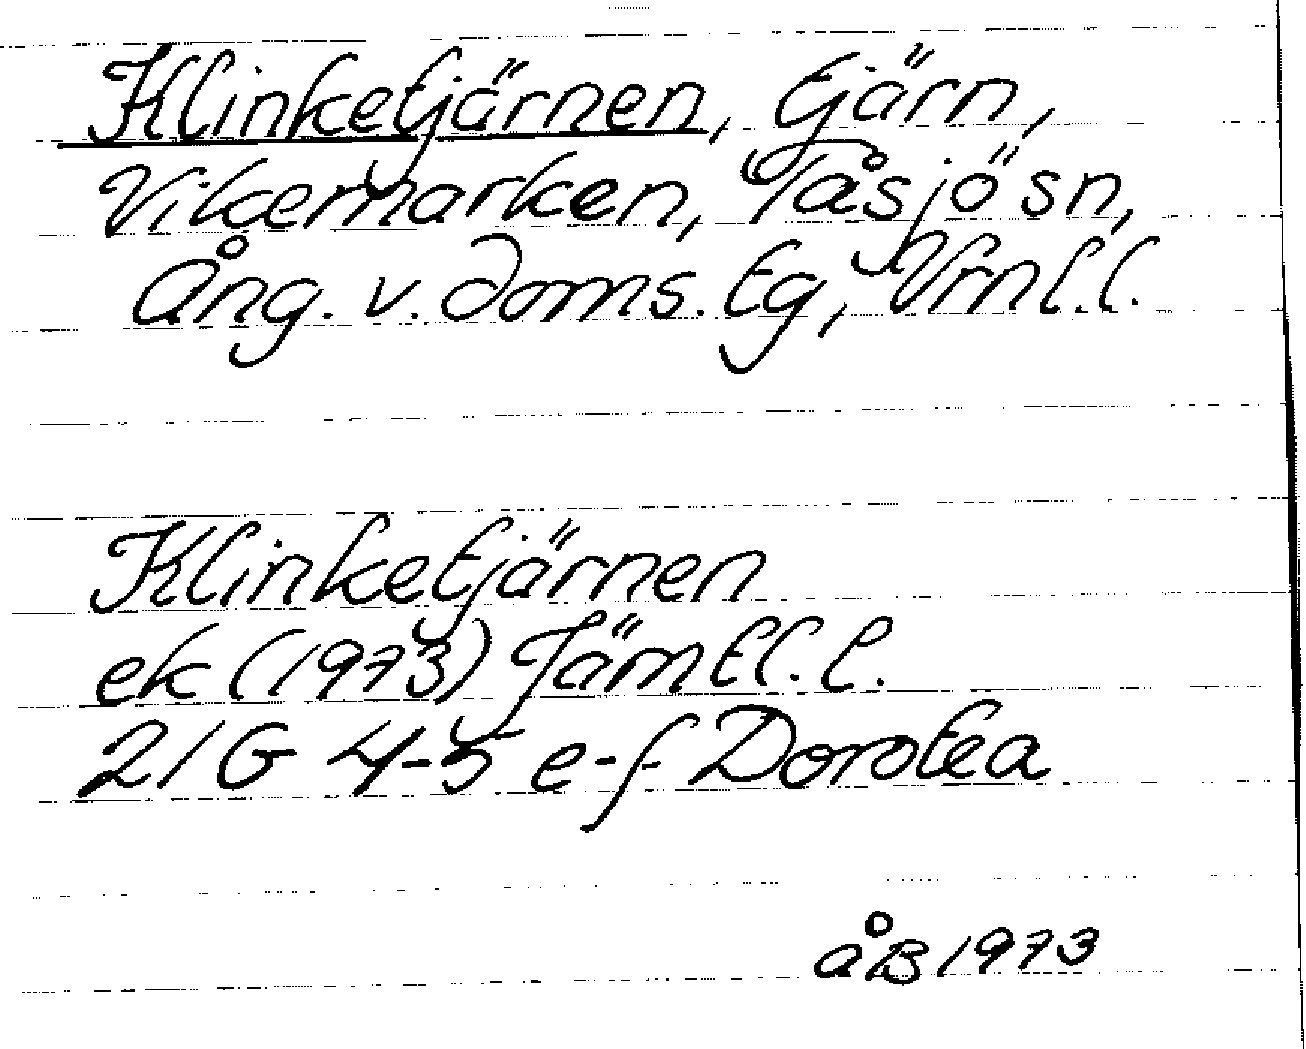 Klinketjärnen, tjärn,
Vikermarken, Tåsjö sn,
Ång. v. doms. tg, Vrnl. l.
Klinketjärnen
ek (1973) Jämtl. l.
21G 4-5 e-f Dorotea
åB 1973